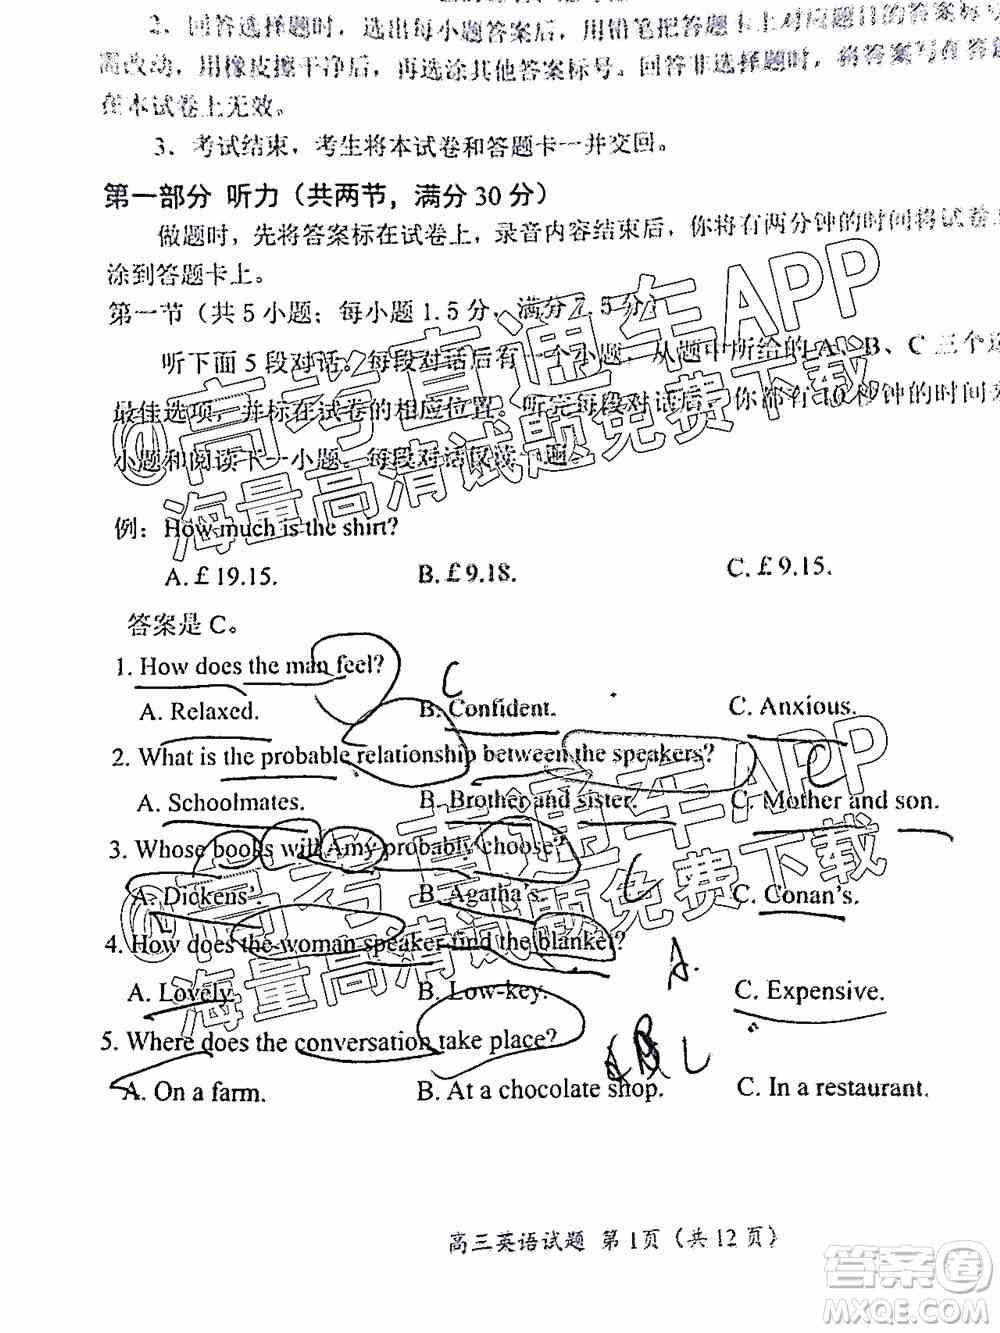 2、回答选择题时，选出每小题答案后，用铅笔把答题卡上对应题目的答案标
需改动，用橡皮擦干净后，再选涂其他答案标号。回答非选择题时，将答案写在答
在本试卷上无效。
3、考试结束，考生将本试卷和答题卡一并交回。
第一部分 听力（共两节，满分 30 分）
做题时，先将答案标在试卷上，录音内容结束后，你将有两分钟的时间将试卷
涂到答题卡上。
第一节（共 5 小题；每小题 1.5 分，满分 7.5 分）
听下面 5 段对话。每段对话后有一个小题，从题中所给的 A、B、C 三个选
最佳选项，并标在试卷的相应位置。听完每段对话后，你都有 10 秒钟的时间来
小题和阅读下一小题。每段对话仅读一遍。
例：How much is the shirt?
A. £ 19.15. B. £ 9.18. C. £ 9.15.
答案是 C。
1. How does the man feel? C
A. Relaxed. B. Confident. C. Anxious.
2. What is the probable relationship between the speakers? C
A. Schoolmates. B. Brother and sister. C. Mother and son.
3. Whose books will Amy probably choose?
A. Dickens'. B. Agatha's. C. Conan's.
C
4. How does the woman speaker find the blanket? A.
A. Lovely. B. Low-key. C. Expensive.
5. Where does the conversation take place?
A. On a farm. B. At a chocolate shop. C. In a restaurant.
高三英语试题 第 1页（共 12 页）
@高考直通车APP
海量高清试题免费下载
@高考直通车APP
海量高清试题免费下载
答案圈
MXQE.COM